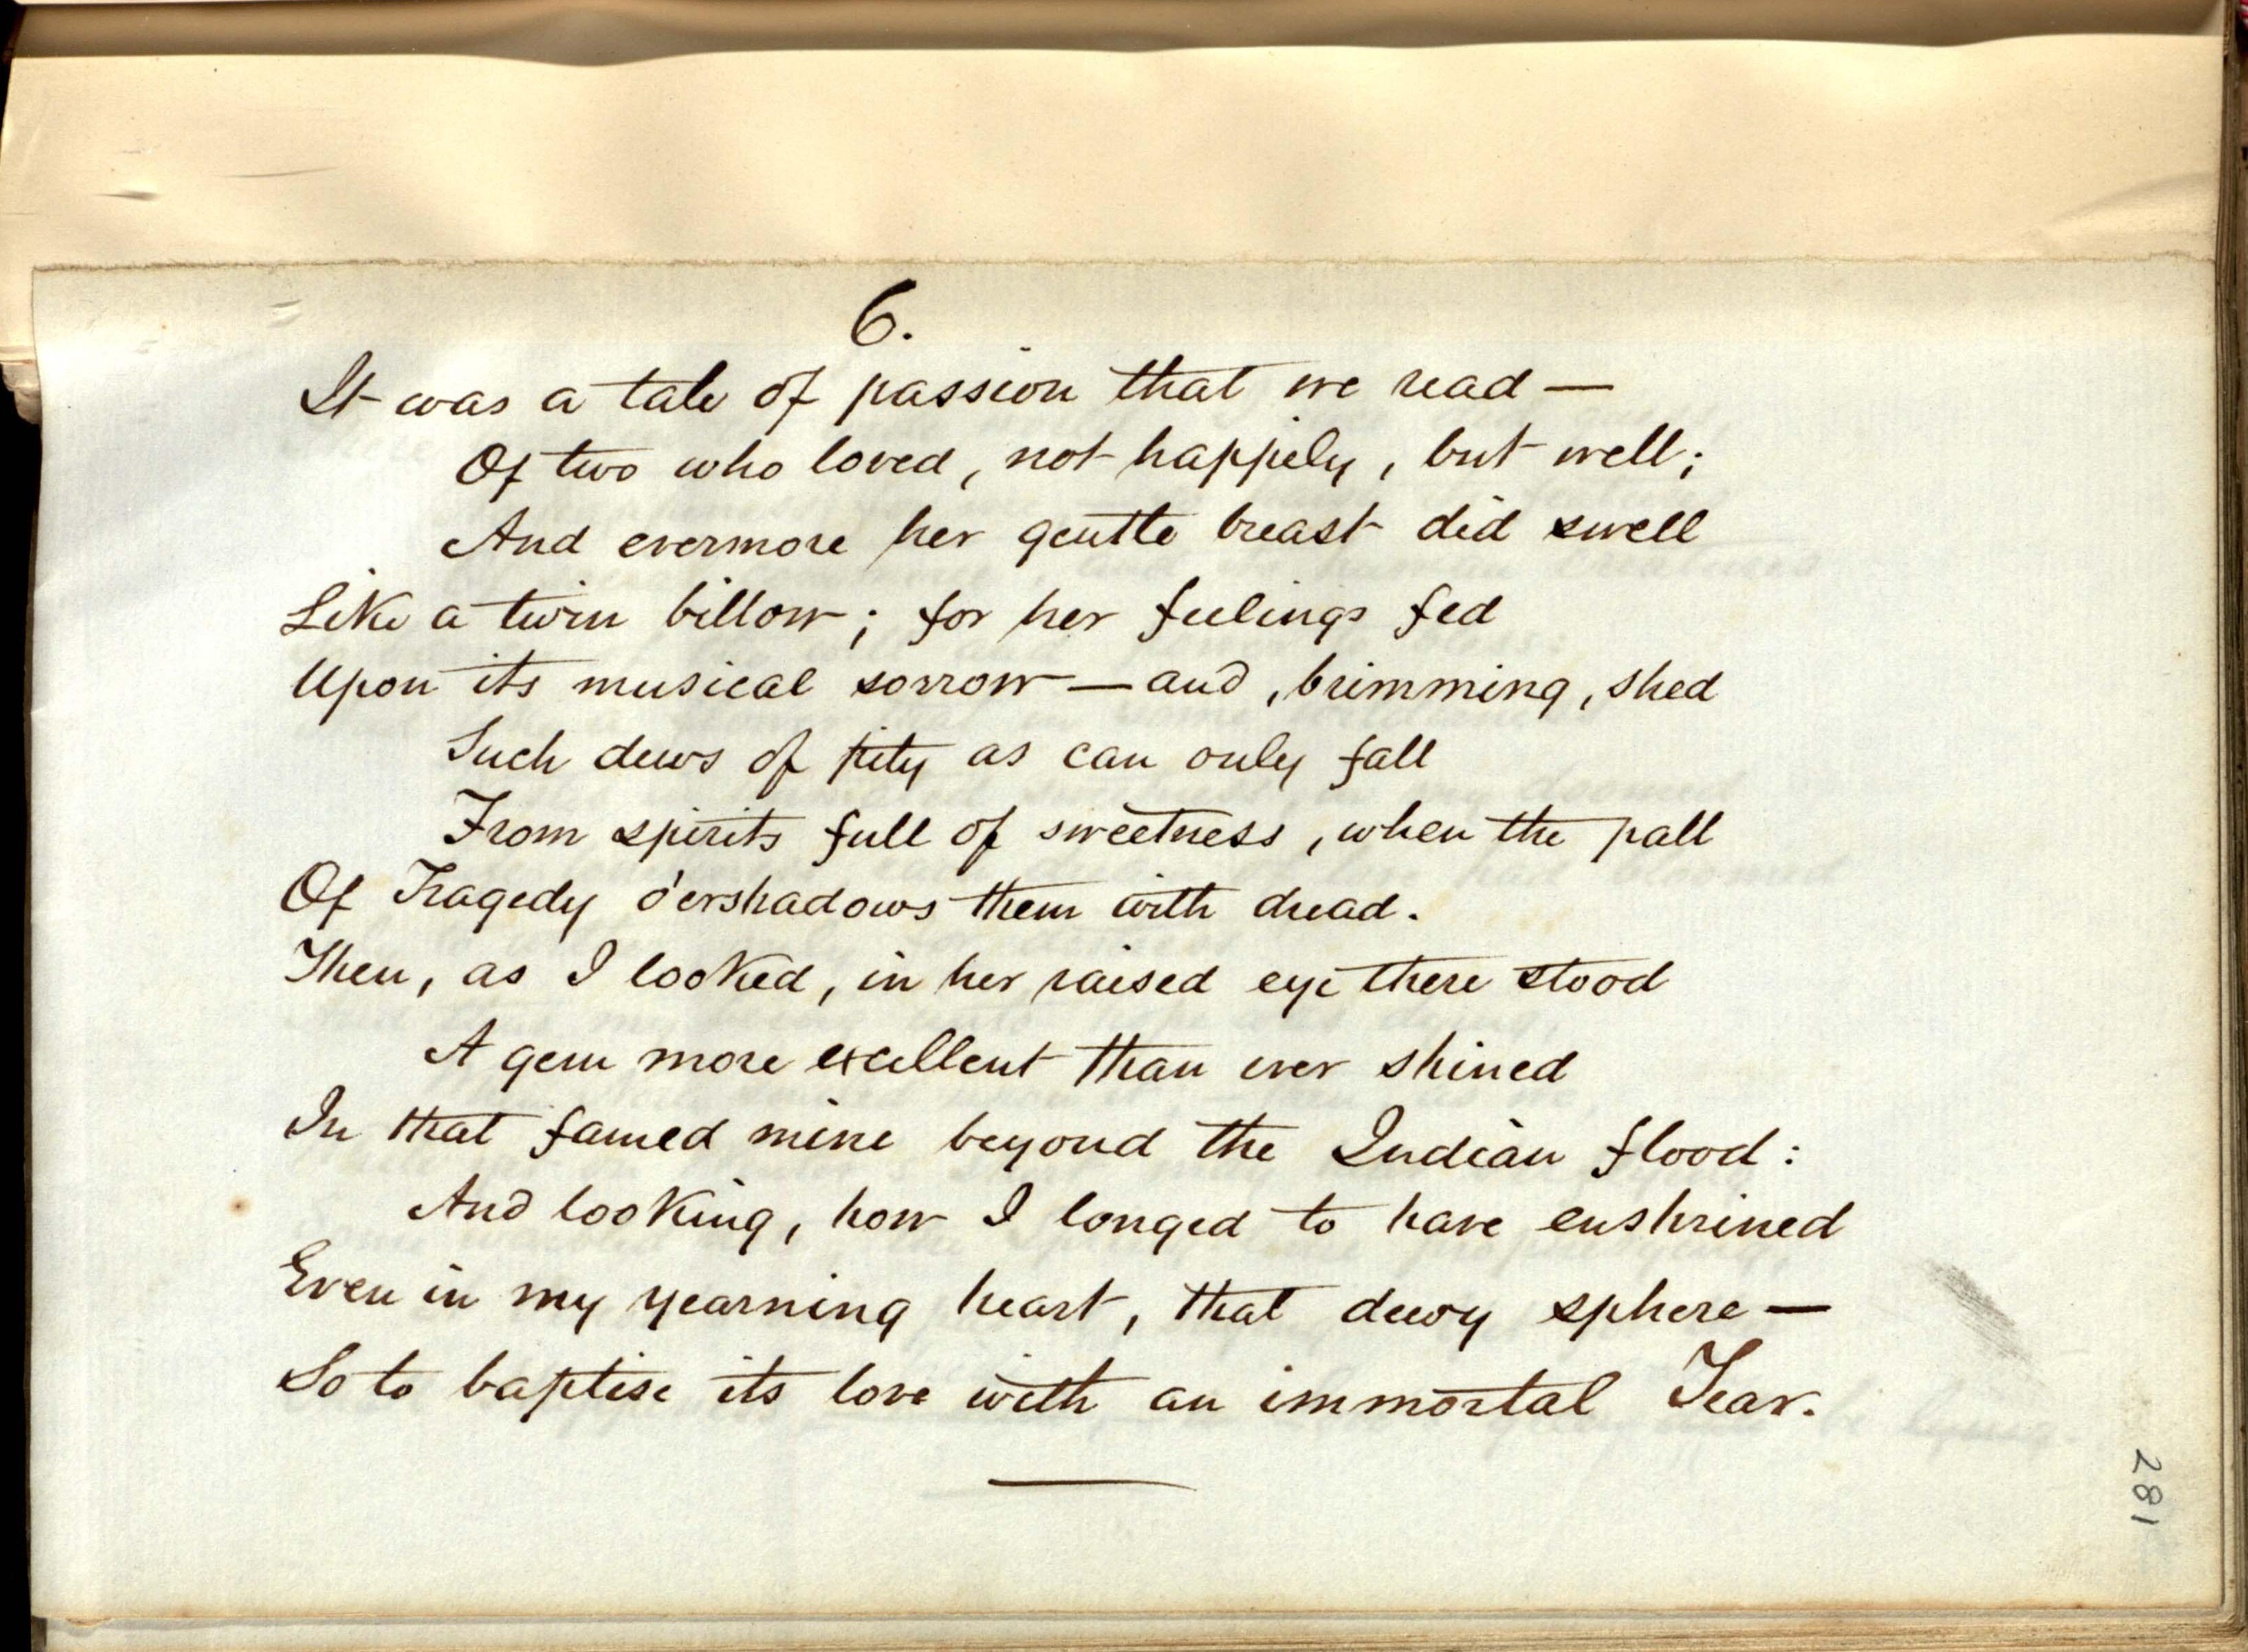 6.
It was a tale of passion that we read —
Of two who loved, not happily, but well;
And evermore her gentle breast did swell
Like a twin billow; for her feelings fed
Upon its musical sorrow — and, brimming, shed
Such dews of pity as can only fall
From spirits full of sweetness, when the pall
Of Tragedy o'ershadows them with dread.
Then, as I looked, in her raised eye there stood
A gem more excellent than ever shined
In that famed mine beyond the Indian flood:
And looking, how I longed to have enshrined
Even in my yearning heart, that dewy sphere —
So to baptise its love with an immortal Tear.
281